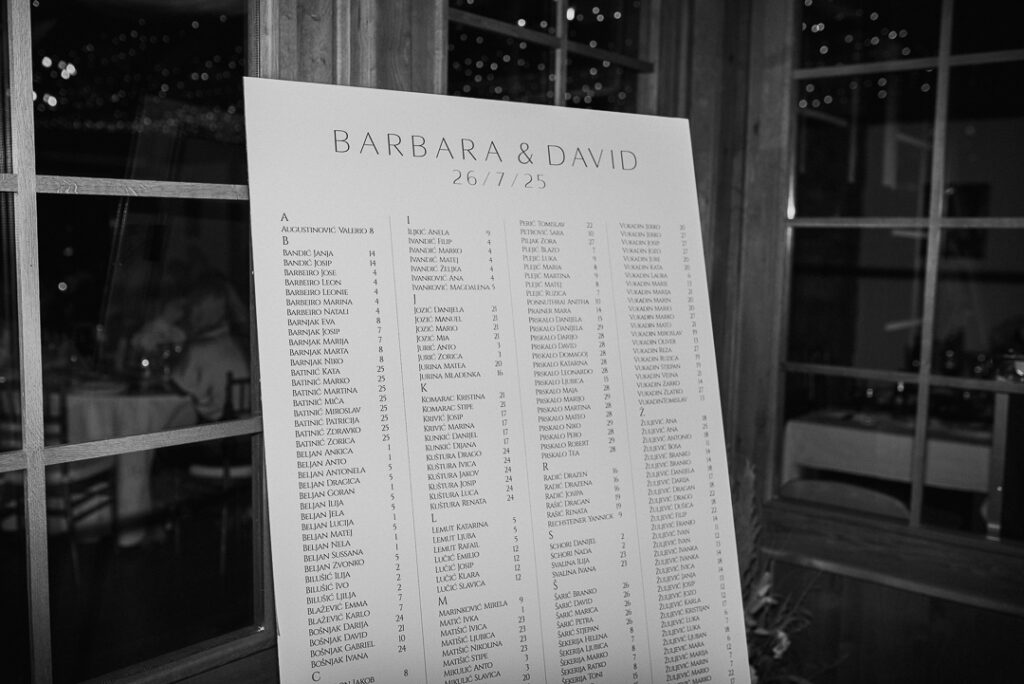 BARBARA & DAVID
26/7/25
A
AUGUSTINOVIĆ VALERIO 8
B
BANDIĆ JANJA 14
BANDIĆ JOSIP 14
BARBEIRO JOSE 4
BARBEIRO LEON 4
BARBEIRO LEONIE 4
BARBEIRO MARINA 4
BARBEIRO NATALI 4
BARNJAK EVA 8
BARNJAK JOSIP 7
BARNJAK MARIJA 7
BARNJAK MARTA 8
BARNJAK NIKO 8
BATINIĆ KATA 25
BATINIĆ MARKO 25
BATINIĆ MARTINA 25
BATINIĆ MIĆA 25
BATINIĆ MIROSLAV 25
BATINIĆ PATRICIJA 25
BATINIĆ ZDRAVKO 25
BATINIĆ ZORICA 25
BELJAN ANKICA 1
BELJAN ANTO 1
BELJAN ANTONELA 5
BELJAN DRAGICA 5
BELJAN GORAN 1
BELJAN ILIJA 5
BELJAN JELA 1
BELJAN LUCIJA 5
BELJAN MATEJ 1
BELJAN NELA 1
BELJAN SUSSANA 5
BELJAN ZVONKO 5
BILUŠIĆ ILIJA 2
BILUŠIĆ IVO 2
BILUŠIĆ LJILJA 2
BLAŽEVIĆ EMMA 7
BLAŽEVIĆ KARLO 7
BOŠNJAK DARIJA 24
BOŠNJAK DAVID 21
BOŠNJAK GABRIEL 10
BOŠNJAK IVANA 24
C
JAKOB 8
I
ILJKIĆ ANELA 9
IVANDIĆ FILIP 4
IVANDIĆ MARKO 4
IVANDIĆ MATEJ 4
IVANDIĆ ŽELJKA 4
IVANKOVIĆ ANA 4
IVANKOVIĆ MAGDALENA 5
J
JOZIĆ DANIJELA 21
JOZIĆ MANUEL 21
JOZIĆ MARIO 21
JOZIĆ MIA 21
JURIĆ ANTO 3
JURIĆ ZORICA 3
JURINA MATEA 20
JURINA MLADENKA 16
K
KOMARAC KRISTINA 21
KOMARAC STIPE 21
KRIVIĆ JOSIP 17
KRIVIĆ MARINA 17
KUNKIĆ DANIJEL 17
KUNKIĆ DIJANA 17
KUŠTURA DRAGO 24
KUŠTURA IVICA 24
KUŠTURA JAKOV 24
KUŠTURA JOSIP 24
KUŠTURA LUCA 24
KUŠTURA RENATA 24
L
LEMUT KATARINA 5
LEMUT LJUBA 5
LEMUT RAFAIL 5
LUČIĆ EMILIO 12
LUČIĆ JOSIP 12
LUČIĆ KLARA 12
LUČIĆ SLAVICA 12
M
MARINKOVIĆ MIRELA 9
MATIĆ IVKA 1
MATIŠIĆ IVICA 23
MATIŠIĆ LJUBICA 23
MATIŠIĆ NIKOLINA 23
MATIŠIĆ STIPE 23
MIKULIĆ ANTO 3
MIKULIĆ SLAVICA 20
PERIĆ TOMISLAV 22
PETROVIĆ SARA 10
PILJAK ZORA 27
PLEJIĆ BLAŽO 7
PLEJIĆ LUKA 9
PLEJIĆ MARIA 8
PLEJIĆ MARTINA 9
PLEJIĆ MATEJ 8
PLEJIĆ RUŽICA 7
PONNUTHRAI ANITHA 10
PRAINER MARA 14
PRSKALO DANIJELA 13
PRSKALO DANIJELA 29
PRSKALO DARIJO 28
PRSKALO DAVID 28
PRSKALO DOMAGOJ 28
PRSKALO KATARINA 28
PRSKALO LEONARDO 28
PRSKALO LJUBICA 13
PRSKALO MAJA 28
PRSKALO MARIJO 29
PRSKALO MARTINA 28
PRSKALO MATEO 28
PRSKALO NIKO 29
PRSKALO PERO 28
PRSKALO ROBERT 29
PRSKALO TEA 28
R
RADIĆ DRAŽEN 16
RADIĆ DRAŽENA 16
RADIĆ JOSIPA 16
RAŠIĆ DRAGAN 19
RAŠIĆ RENATA 19
RECHSTEINER YANNICK 9
S
SCHORI DANIJEL 2
SCHORI NADA 2
SVALINA ILIJA 23
SVALINA IVANA 23
Š
ŠARIĆ BRANKO 26
ŠARIĆ DAVID 26
ŠARIĆ MARICA 26
ŠARIĆ PETRA 26
ŠARIĆ STJEPAN 26
ŠEKERIJA HELENA 8
ŠEKERIJA LJUBICA 8
ŠEKERIJA MARKO 7
ŠEKERIJA RATKO 8
ŠEKERIJA TONI 15
VUKADIN JERKO 20
VUKADIN JERKO 27
VUKADIN JOSIP 27
VUKADIN JOZO 27
VUKADIN JURE 20
VUKADIN KATA 20
VUKADIN LAURA 6
VUKADIN MARIE 13
VUKADIN MARIJA 21
VUKADIN MARIN 20
VUKADIN MARIO 20
VUKADIN MARKO 27
VUKADIN MATO 21
VUKADIN MIROSLAV 19
VUKADIN OLIVER 13
VUKADIN REZA 27
VUKADIN RUŽICA 19
VUKADIN STJEPAN 13
VUKADIN VEINA 21
VUKADIN ŽARKO 14
VUKADIN ZLATKO 27
VUKADIN TOMISLAV 13
Ž
ŽULJEVIĆ ANA 18
ŽULJEVIĆ ANA 25
ŽULJEVIĆ ANTONIO 18
ŽULJEVIĆ BOSA 11
ŽULJEVIĆ BRANKO 14
ŽULJEVIĆ BRANKO 14
ŽULJEVIĆ DANIJELA 18
ŽULJEVIĆ DARIJA 17
ŽULJEVIĆ DRAGAN 18
ŽULJEVIĆ DRAGO 22
ŽULJEVIĆ DUŠICA 18
ŽULJEVIĆ FILIP 22
ŽULJEVIĆ FRANJO 11
ŽULJEVIĆ IVAN 11
ŽULJEVIĆ IVAN 12
ŽULJEVIĆ IVANKA 13
ŽULJEVIĆ IVANKA 14
ŽULJEVIĆ IVICA 18
ŽULJEVIĆ JANJA 14
ŽULJEVIĆ JOSIP 13
ŽULJEVIĆ JOZO 12
ŽULJEVIĆ KARLA 12
ŽULJEVIĆ KRISTIJAN 17
ŽULJEVIĆ LUKA 6
ŽULJEVIĆ LUKA 7
ŽULJEVIĆ LJUBAN 18
ŽULJEVIĆ MARA 6
ŽULJEVIĆ MARIJA 12
ŽULJEVIĆ MARIN 7
ŽULJEVIĆ MARIO 12
ŽULJEVIĆ MARKO 7